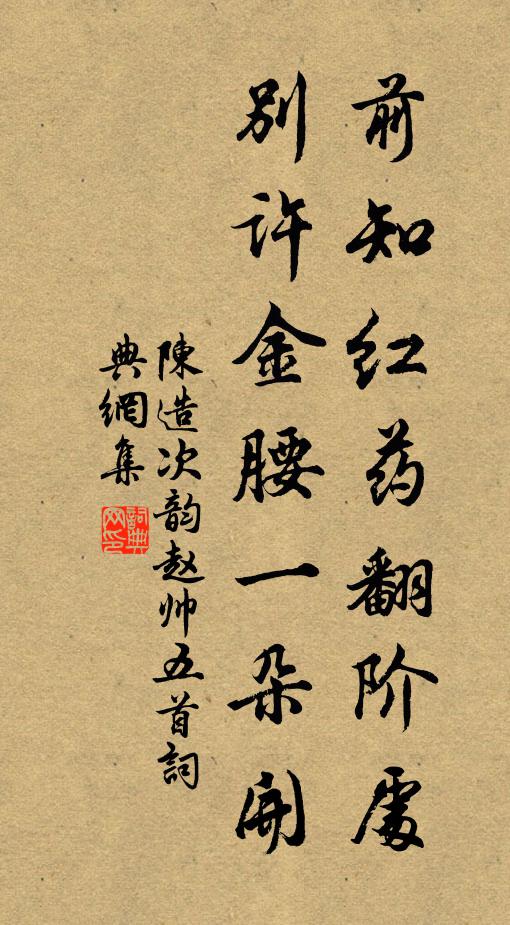 前知红药翻阶處
别许金腰一朵開
陳造次韵赵帅五首詞
典網集
詞典
网印